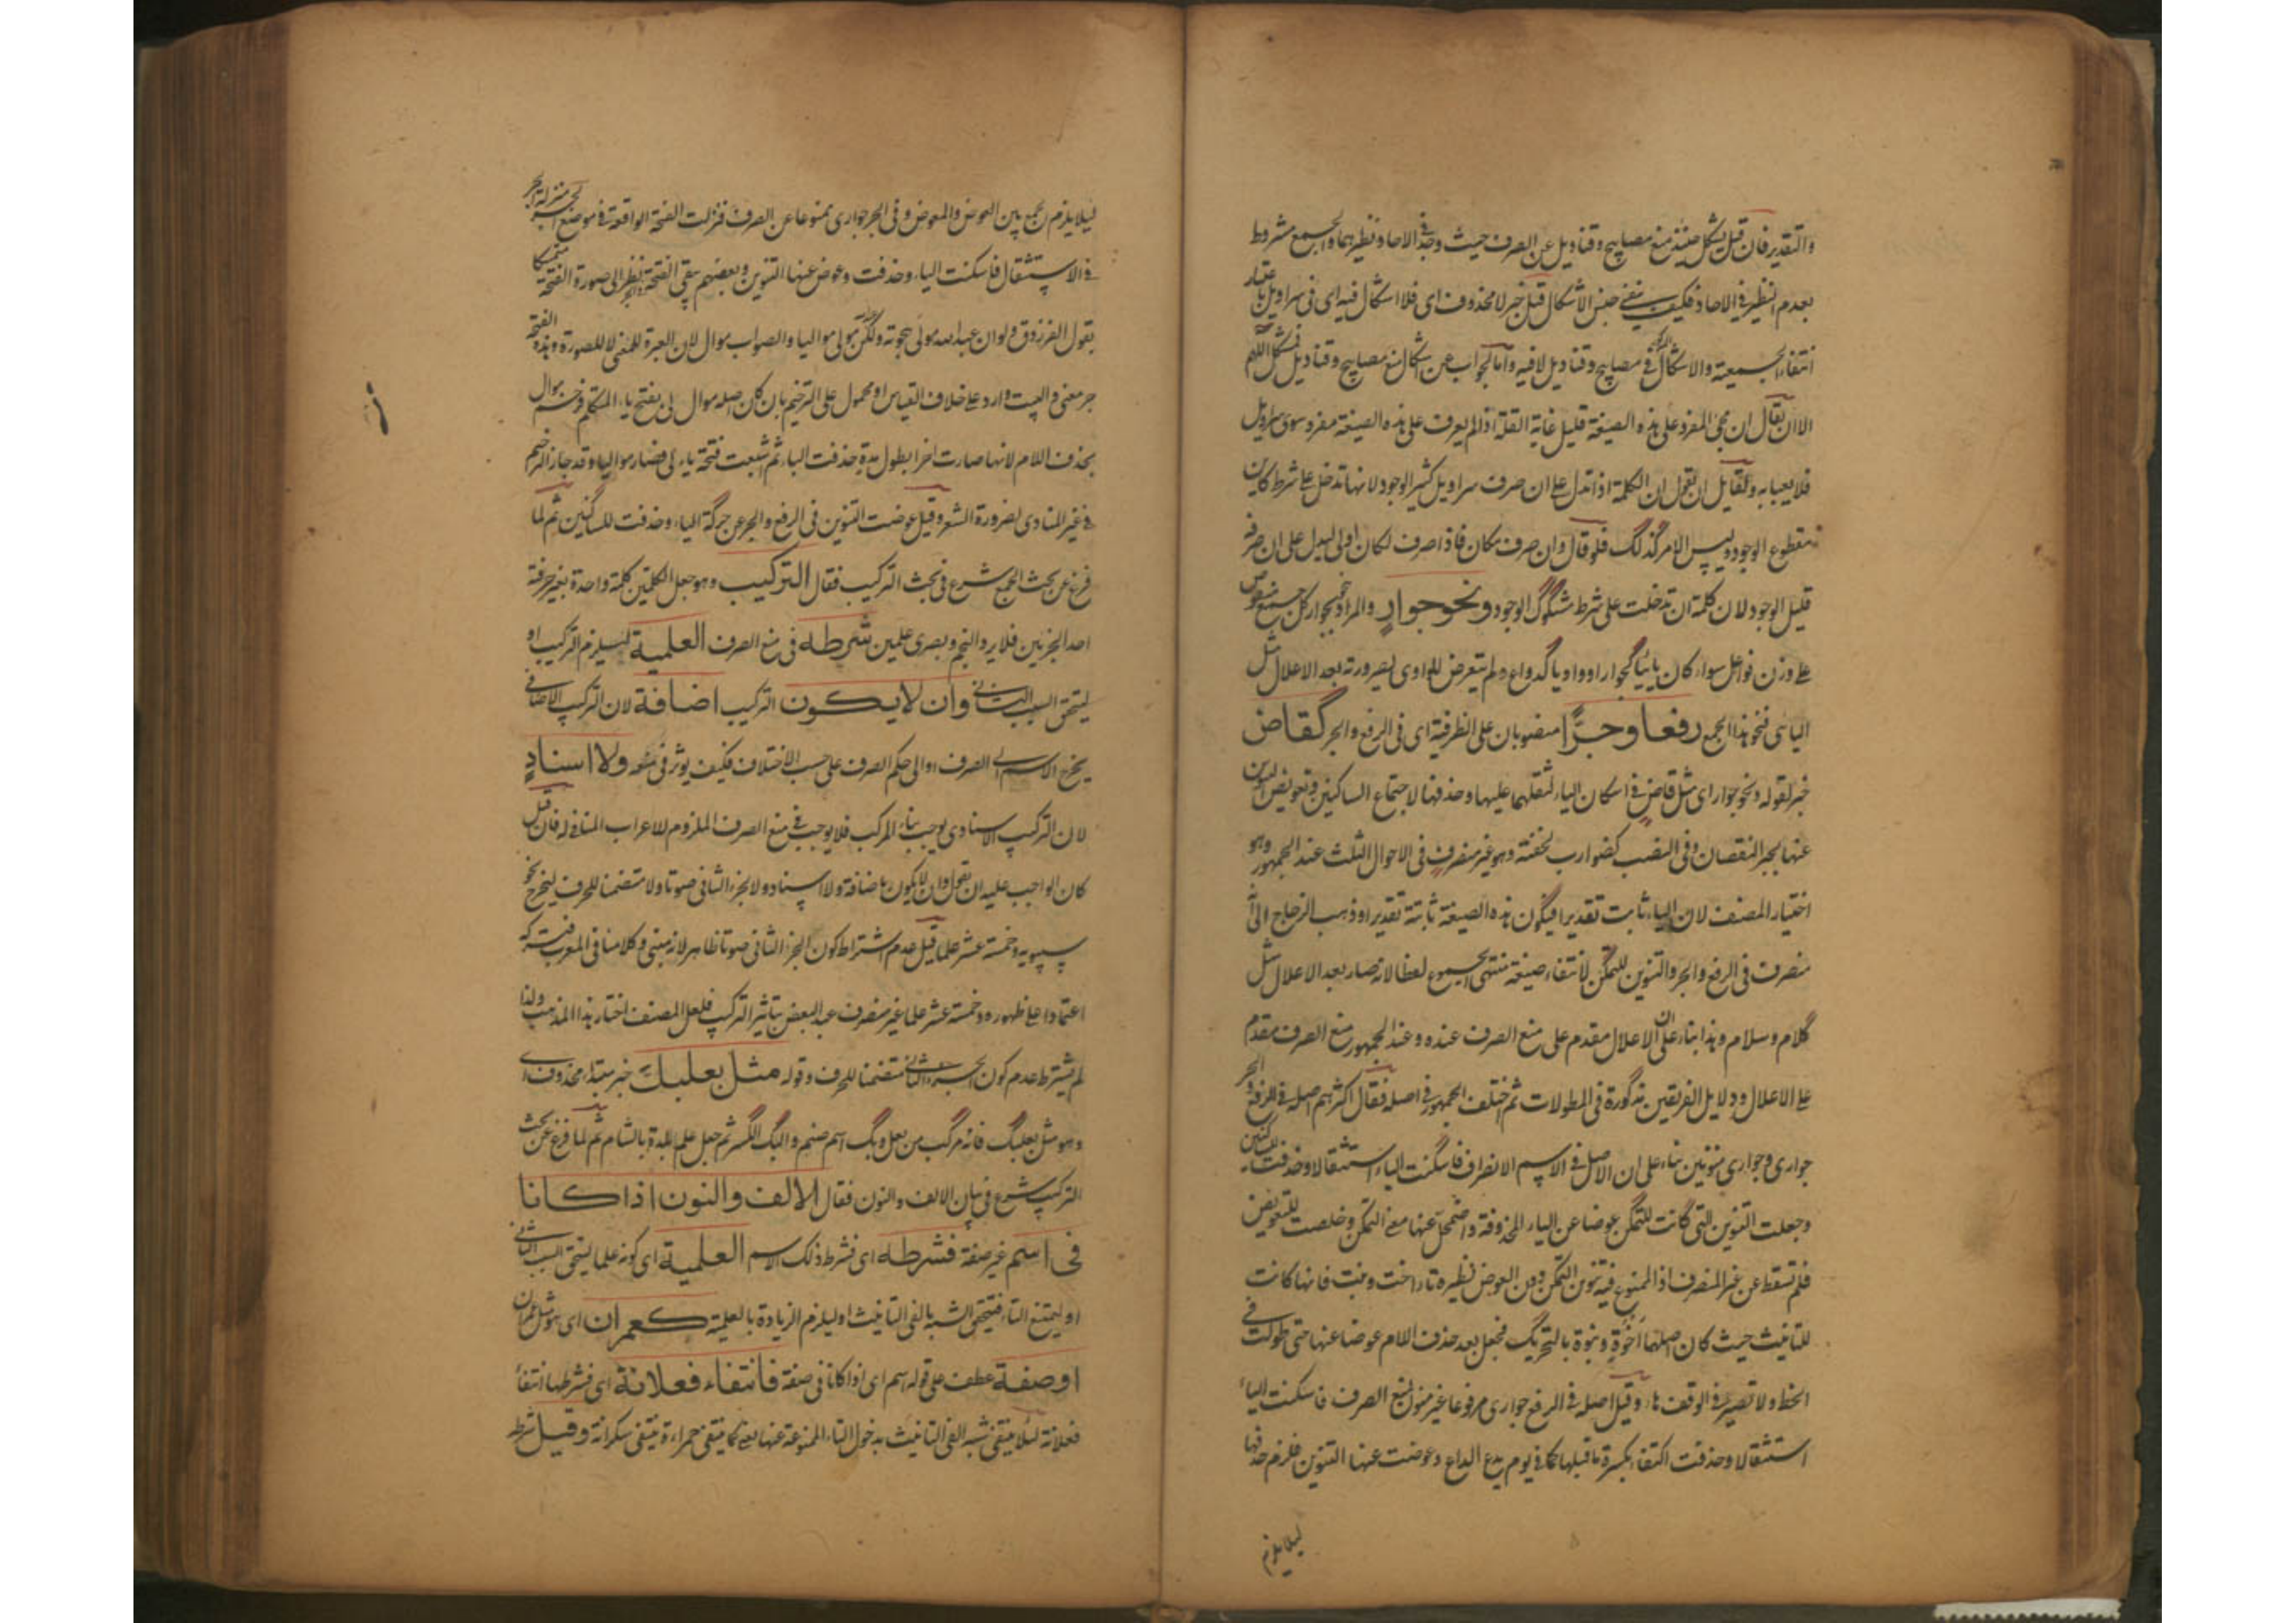 والتقدير فان قيل يشكل حينئذ منع مصابيح وقناديل عن الصرف حيث وجد في الاحاد نظيرهما والجمع مشروط
بعدم النظير في الاحاد فكيف ينفي جنس الاشكال قيل خبر لا محذوف اى فلا اشكال فيه اى فى سراويل باعتبار
انتفاء الجمعية والاشكال في مصابيح وقناديل لا فيه واما الجواب عن اشكال منع مصابيح وقناديل فمشكل اللهم
الا ان يقال ان مجئ المفرد على هذه الصيغة قليل غاية القلة اذ لم يعرف على هذه الصيغة مفرد سوى سراويل
فلا يعبا به ولقايل ان يقول ان الكلمة اذا تدل على ان صرف سراويل كثير الوجود لانها تدخل على شرط كاين
مقطوع الوجود وليس الامر كذلك فلو قال وان صرف مكان فاذا صرف لكان اولى ليدل على ان صرفه
قليل الوجود لان كلمة ان تدخلت على شرط مشكوك الوجود ونحو جوارٍ والمراد بنحو جوار كل جمع منقوص
على وزن فواعل سواء كان يائيا كجوار او واويا كدواع ولم يتعرض للواوى لصيرورته بعد الاعلال مثل
اليائى فنحو هذا الجمع رفعا وجرًّا منصوبان على الظرفية اى فى الرفع والجر كقاض
خبر لقوله ونحو جوار اى مثل قاض في اسكان الياء لثقلهما عليها وحذفها لاجتماع الساكنين وتعويض التنوين
عنها لجبر النقصان وفى النصب كضوارب لخفته وهو غير منصرف فى الاحوال الثلث عند الجمهور وهو
اختيار المصنف لان الياء ثابت تقديرا فيكون هذه الصيغة ثابتة تقديرا وذهب الزجاج الى انه
منصرف فى الرفع والجر والتنوين للتمكن لانتفاء صيغة منتهى الجموع لفظا لانه صار بعد الاعلال مثل
كلام وسلام وهذا بناء على ان الاعلال مقدم على منع الصرف عنده وعند الجمهور منع الصرف مقدم
على الاعلال ودلايل الفريقين مذكورة فى المطولات ثم اختلف الجمهور في اصله فقال اكثرهم اصله في الرفع والجر
جوارى وجوارى منونين بناء على ان الاصل في الاسم الانصراف فاسكنت الياء استثقالا وحذفت للساكنين
وجعلت التنوين التى كانت للتمكن عوضا عن الياء المحذوفة واضمحل عنها معنى التمكن وخلصت للتعويض
فلم تسقط عن غير المنصرف اذ الممنوع فيه تنوين التمكن دون العوض نظيره تاء اخت وبنت فانها كانت
للتانيث حيث كان اصلهما اخوة وبنوة بالتحريك فجعل بعد حذف اللام عوضا عنها حتى طولت في
الخط ولا تصير في الوقف هاء وقيل اصله في الرفع جوارى مرفوعا غير منون لمنع الصرف فاسكنت الياء
استثقالا وحذفت اكتفاء بكسرة ما قبلها كما في يوم يدع الداع وعوضت عنها التنوين فلزم حذفها
ليلا يلزم
ليلا يلزم الجمع بين العوض والمعوض وفى الجر جوارى ممنوعا عن الصرف فنزلت الفتحة الواقعة في موضع الجر منزلة الجر
في الاستثقال فاسكنت الياء وحذفت وعوض عنها التنوين وبعضهم يبقى الفتحة نظرا الى صورة الفتحة متمسكا
بقول الفرزدق ولو ان عبد الله مولى هجوته ولكن مولى مواليا والصواب موال لان العبرة للمعنى لا للصورة وهذه الفتحة
جر معنى والبيت وارد على خلاف القياس او محمول على الترخيم بان كان اصله موال لى بفتح ياء المتكلم فرخم موال
بحذف اللام لانها صارت اخرا بطول مدة حذفت الياء ثم اشبعت فتحة ياء لى فصار مواليا وقد جاز الترخيم
في غير المنادى لضرورة الشعر وقيل عوضت التنوين فى الرفع والجر عن حركة الياء وحذفت للساكنين ثم لما
فرغ عن بحث الجمع شرع فى بحث التركيب فقال التركيب وهو جعل الكلمتين كلمة واحدة بغير حرفية
احد الجزئين فلا يرد النجم وبصرى علمين شرطه فى منع الصرف العلمية ليلزم التركيب او
ليتحقق السبب الثانى وان لا يكون التركيب اضافة لان التركيب الاضافى
يخرج الاسم الى الصرف او الى حكم الصرف على حسب الاختلاف فكيف يوثر فى منعه ولا اسنادٍ
لان التركيب الاسنادى يوجب بناء المركب فلا يوجب منع الصرف الملزوم للاعراب المنافى له فان قيل
كان الواجب عليه ان يقول وان لا يكون باضافة ولا اسناد ولا الجزء الثانى صوتا ولا متضمنا للحرف ليخرج نحو
سيبويه وخمسة عشر علما قيل عدم اشتراط كون الجزء الثانى صوتا ظاهر لانه مبنى وكلامنا فى المعرب فتركه
اعتمادا على ظهوره وخمسة عشر علما غير منصرف عند البعض بتاثير التركيب فلعل المصنف اختار هذا المذهب ولذا
لم يشترط عدم كون الجزء الثانى متضمنا للحرف وقوله مثل بعلبك خبر مبتدا محذوف اى
وهو مثل بعلبك فانه مركب من بعل وبك اسم صنم والبك الكسر ثم جعل علم بلدة بالشام ثم لما فرغ عن بحث
التركيب شرع فى بيان الالف والنون فقال الالف والنون اذا كانا
فى اسم غير صفة فشرطه اى فشرط ذلك الاسم العلمية اى كونه علما ليتحقق السبب الثانى
او ليمتنع التاء فيتحقق الشبه بالفى التانيث او ليلزم الزيادة بالعلمية كعمران اى هو مثل عمران
او صفة عطف على قوله اسم اى اذا كانا فى صفة فانتفاء فعلانة اى فشرطها انتفاء
فعلانة لئلا ينتقى شبه الفى التانيث بدخول التاء الممنوعة عنها كما ينتقى حمراءة ينتقى سكرانة وقيل شرطه